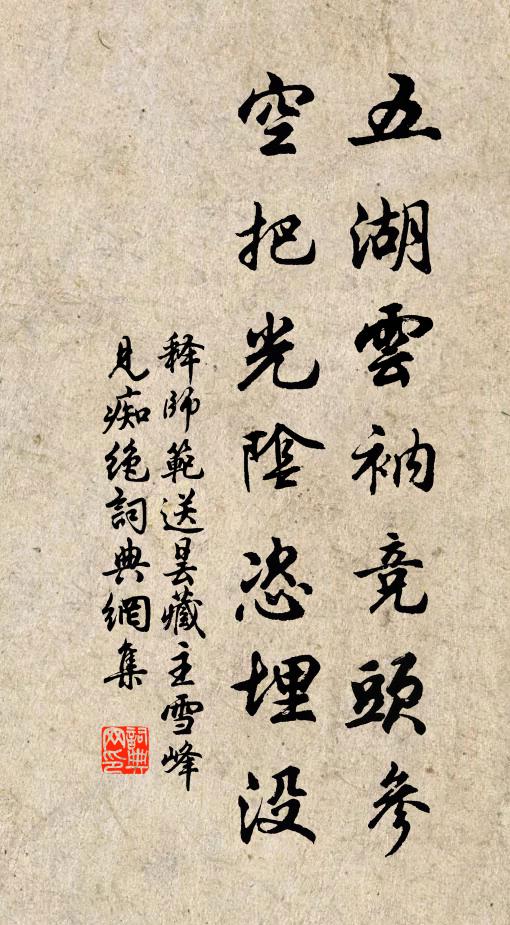 五湖雲衲竞頭參
空把光陰恣埋没
释師範送曇藏主雪峰
見痴绝詞典網集
詞典网印